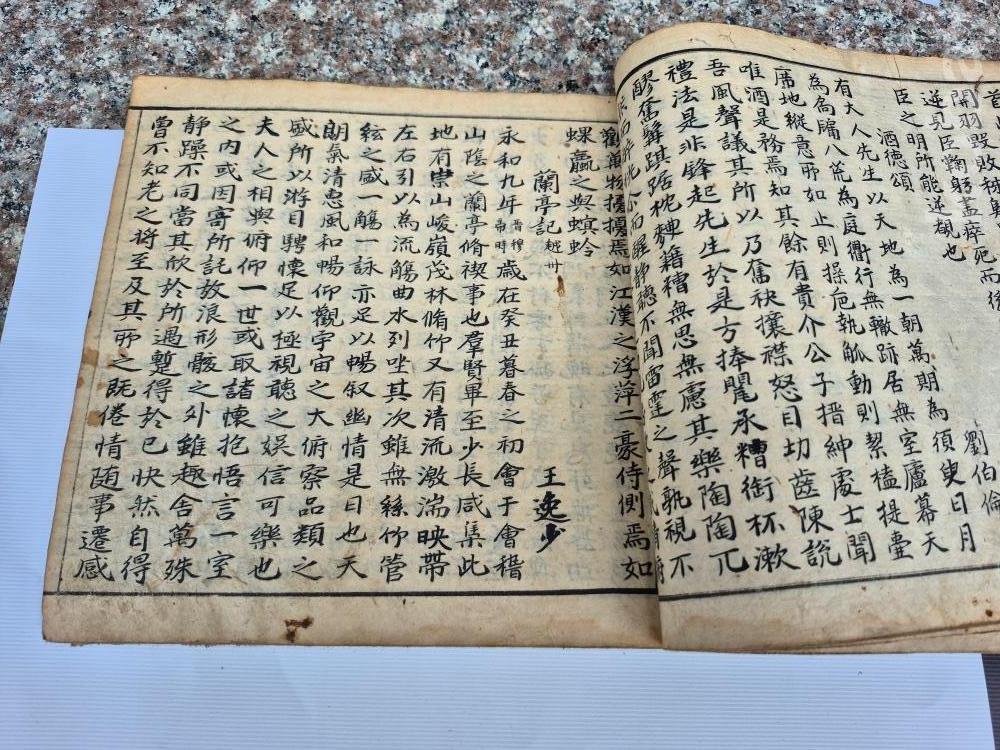 開羽毀敗
逆見臣鞠躬盡瘁死而後
臣之明所能逆覩也
酒德頌 劉伯倫
有大人先生以天地為一朝萬期為須臾日月
為扃牖八荒為庭衢行無轍跡居無室廬幕天
席地縱意所如止則操巵執觚動則挈榼提壷
唯酒是務焉知其餘有貴介公子搢紳處士聞
吾風聲議其所以乃奮袂攘襟怒目切齒陳說
禮法是非鋒起先生於是方捧甖承糟銜杯漱
醪奮髯踑踞枕麯籍糟無思無慮其樂陶陶兀
而醒静聽不聞雷霆之聲孰視不
觀萬物擾擾焉如江漢之浮萍二豪侍側焉如
蜾蠃之與螟蛉
蘭亭記 越卅 王逸少
永和九年晋穆帝時歲在癸丑暮春之初會于會稽
山陰之蘭亭脩禊事也羣賢畢至少長咸集此
地有崇山峻嶺茂林脩竹又有清流激湍映帶
左右引以為流觴曲水列坐其次雖無絲竹管
絃之盛一觴一詠亦足以暢叙幽情是日也天
朗氣清惠風和暢仰觀宇宙之大俯察品類之
盛所以游目騁懷足以極視聽之娛信可樂也
夫人之相與俯仰一世或取諸懷抱悟言一室
之内或因寄所託放浪形骸之外雖趣舍萬殊
静躁不同當其欣於所遇蹔得於已快然自得
曽不知老之将至及其所之既倦情随事遷感